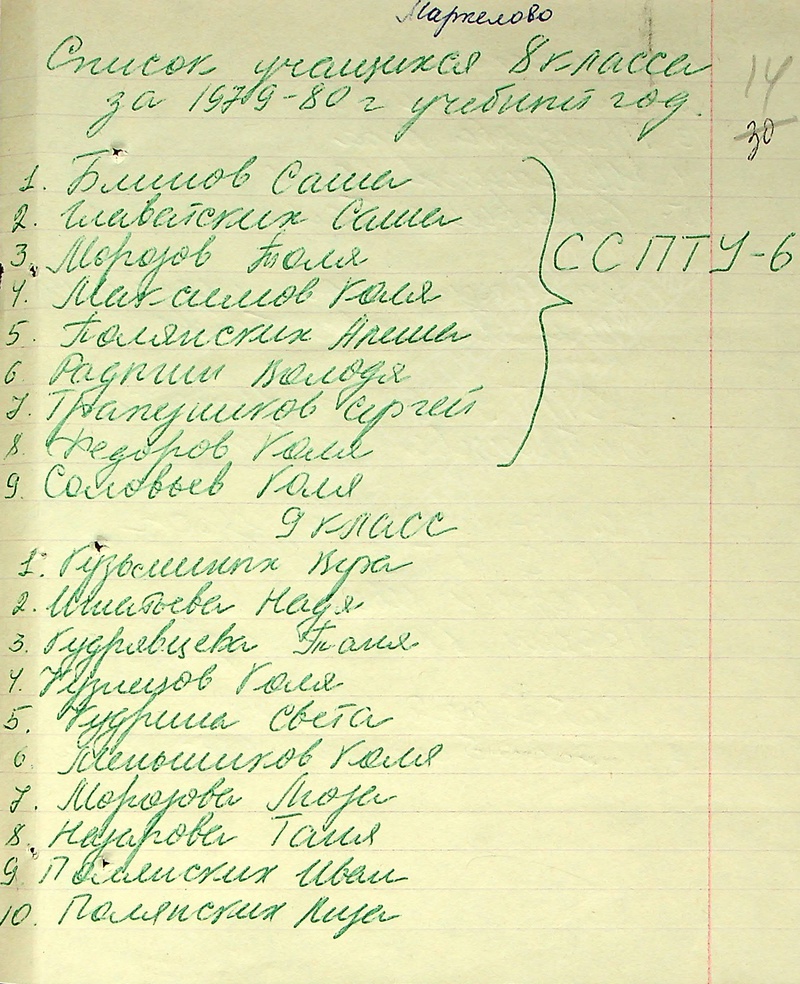 Маркелово
Список учащихся 8 класса
за 1979-80 г учебный год.
14
30
1. Блинов Саша
2. Главатских Саша
3. Морозов Толя
4. Максимов Коля
5. Полянских Алеша
6 Радыгин Володя
7. Трапезников Сергей
8. Федоров Коля
9. Соловьев Коля
ССПТУ-6
9 класс
1. Кузьминых Вера
2. Игнатьева Надя
3. Кудрявцева Таня
4. Кузнецов Коля
5. Кудрина Света
6 Меньшиков Коля
7. Морозова Люза
8. Назарова Таня
9 Полянских Иван
10. Полянских Лиза